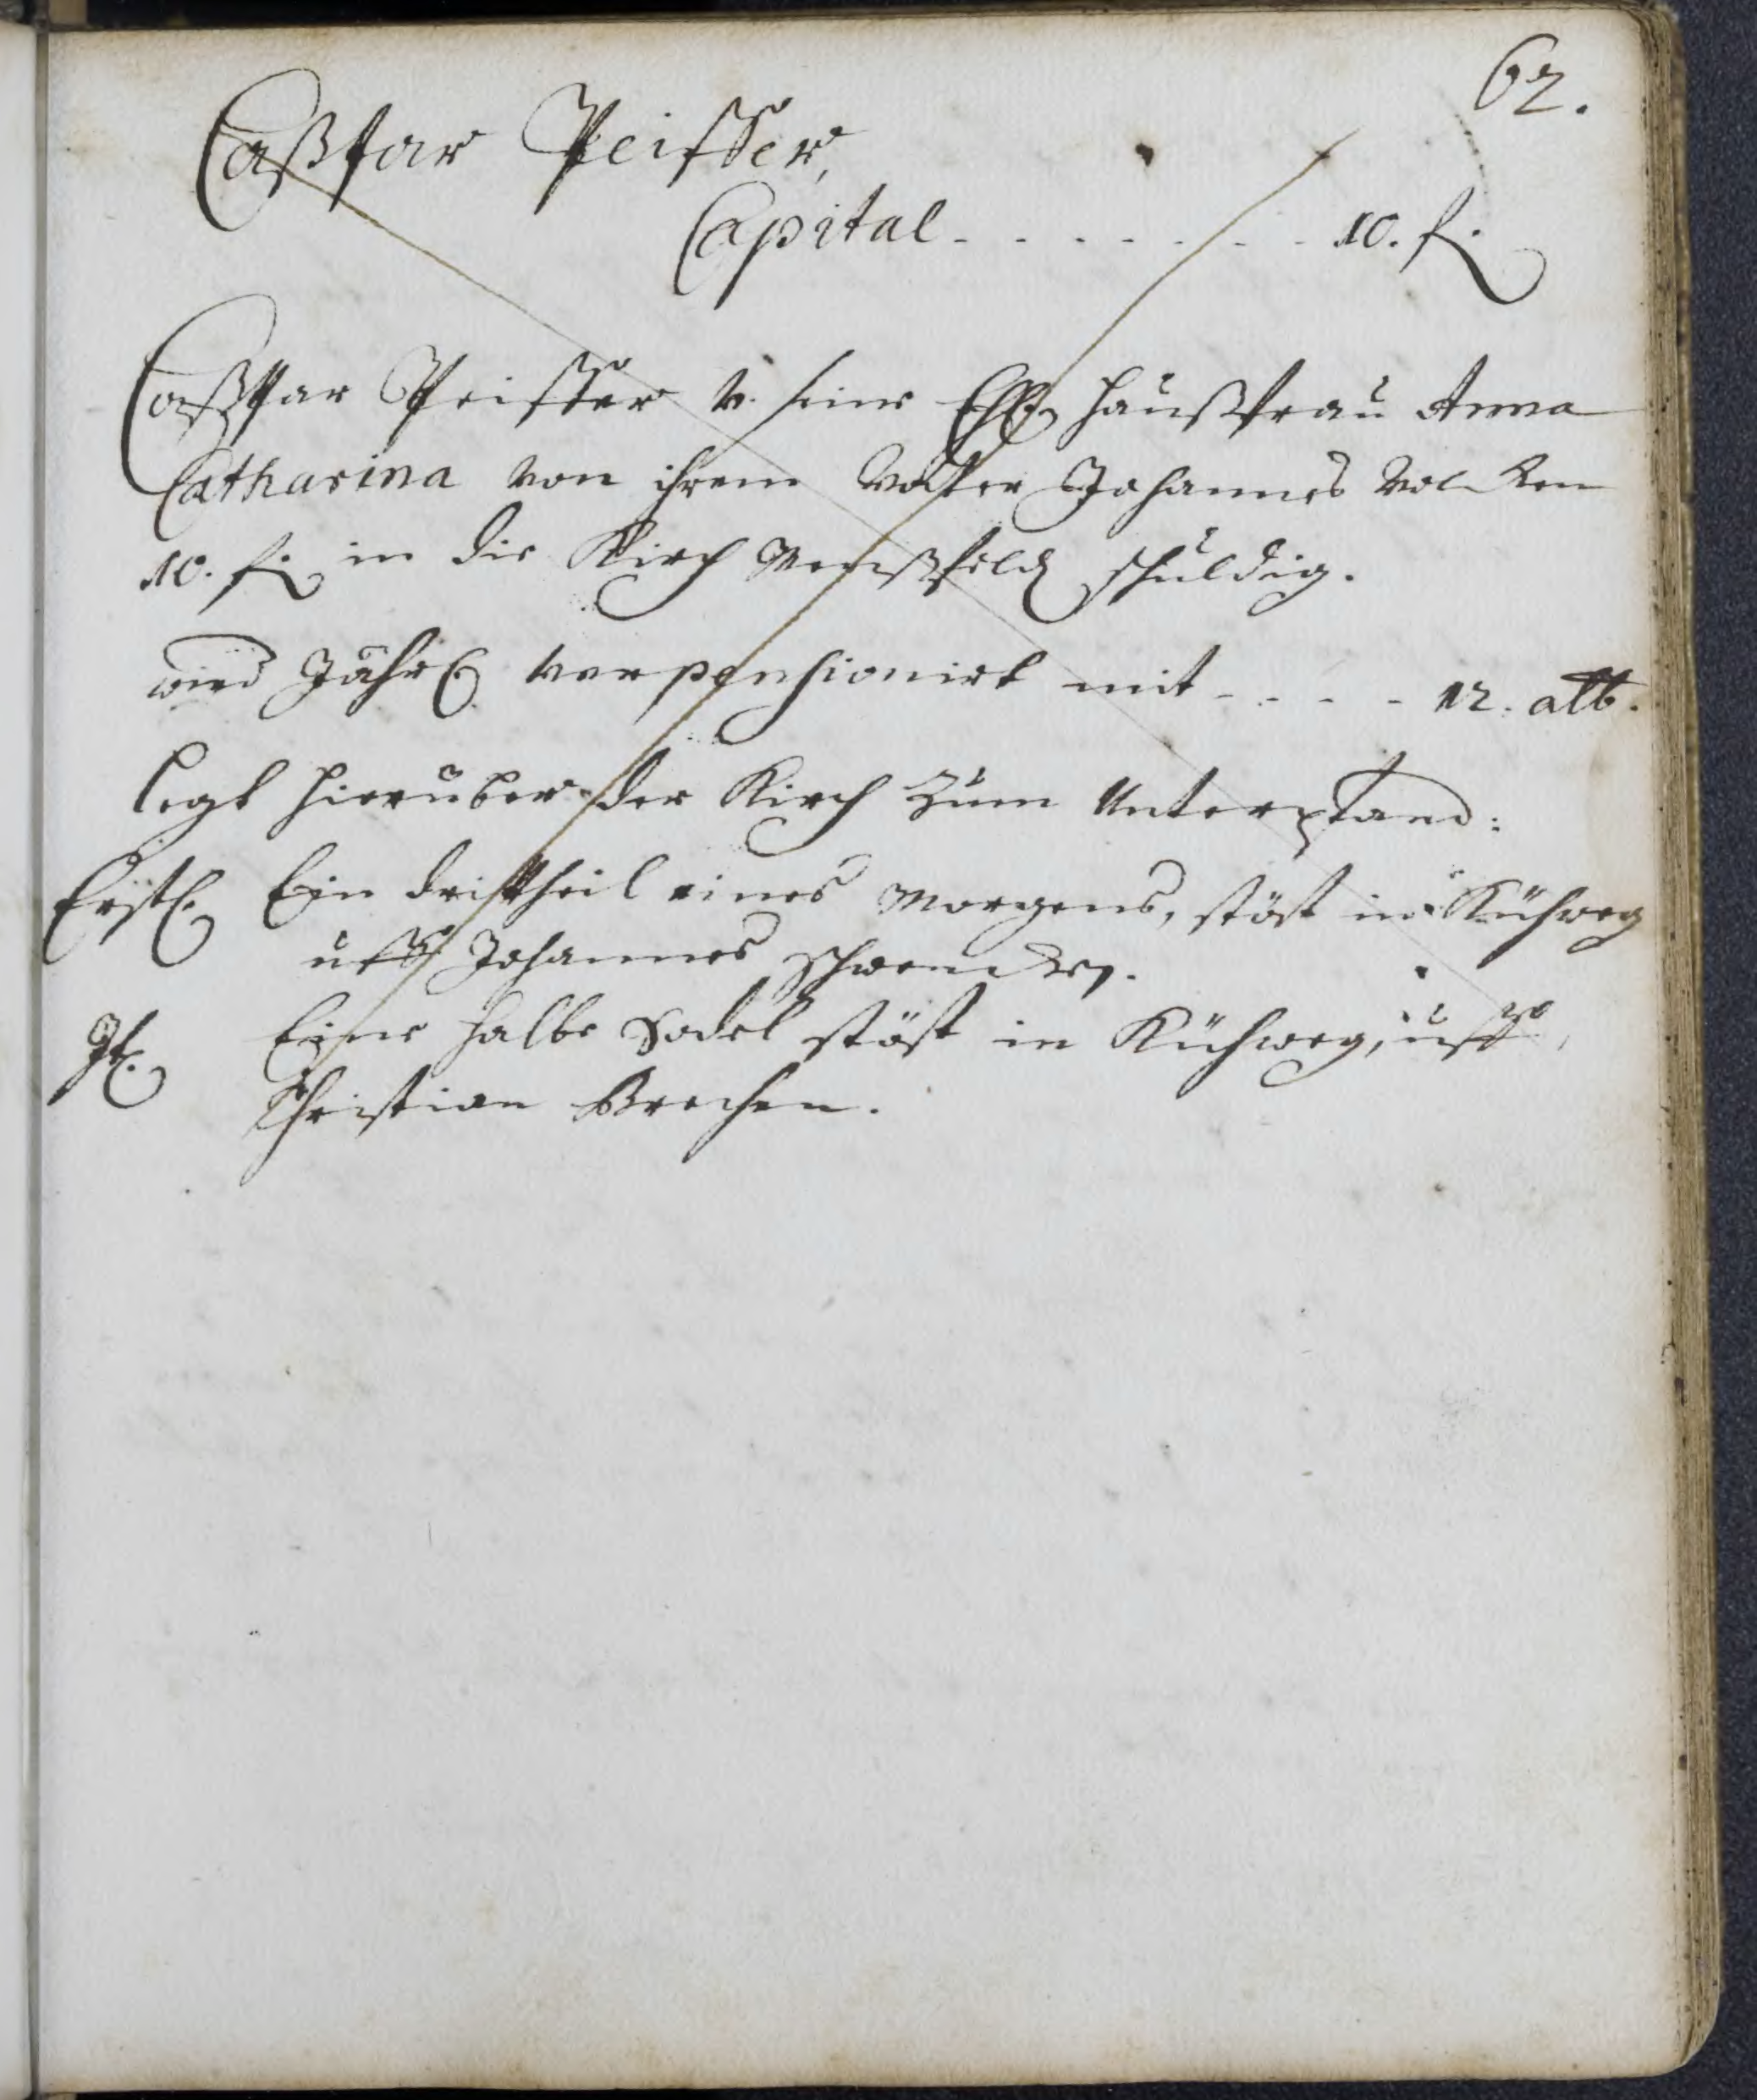 62.
Caßpar Pfeiffer,
Capital - - - - - - - - 10. f.
Caßpar Pfeiffer v. seine Ehl. haußfrau Anna
Catharina von ihrem Vatter Johannes Volcken
10. f. in die Kirch Menßfeld schuldig.
wird Jährl. verpensionirt mit - - - - 12. alb.
legt hierüber der Kirch zum Unterpfand:
Erstl. Ein dritheil eines Morgens, stöst in Kühweg
uff Johannes Schwencken.
It. Eine halbe Sodel stöst in Kühweg, uff,
Christian Brechen.